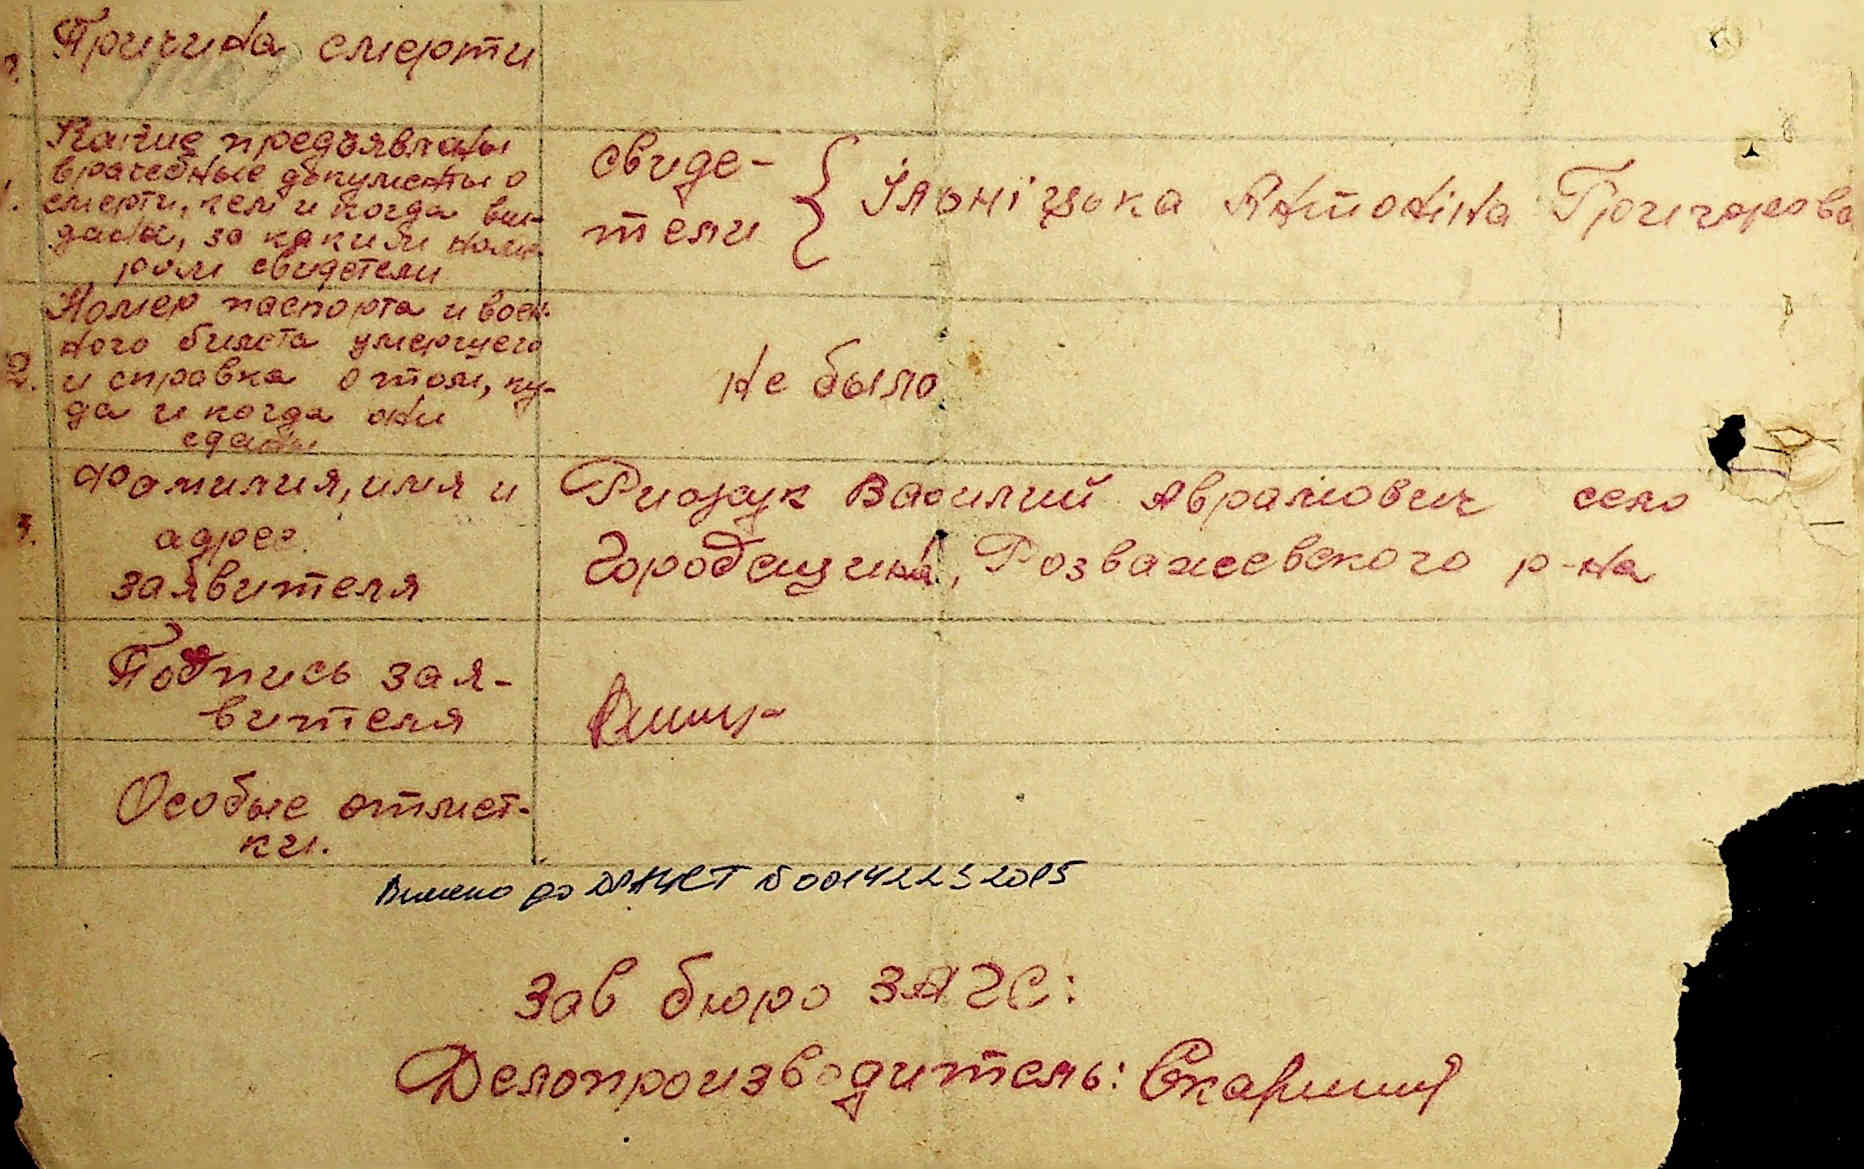 Причина смерти
Какие предъявлены
врачебные документы о
смерти, кем и когда вы-
даны, за каким номе-
ром свидетели
свиде-
тели
Ільніцька Антоніна Григорова
2. Номер паспорта и воен-
ного билета умершего
и справка о том, ку-
да и когда они
сданы
Не было
3. Фамилия, имя и
адрес
заявителя
Василий Аврамович село
Городещина, Розважевского р-на
Подпись зая-
вителя
Особые отмет-
ки.
до ДРАЦСТ
Зав бюро ЗАГС:
Делопроизводитель: